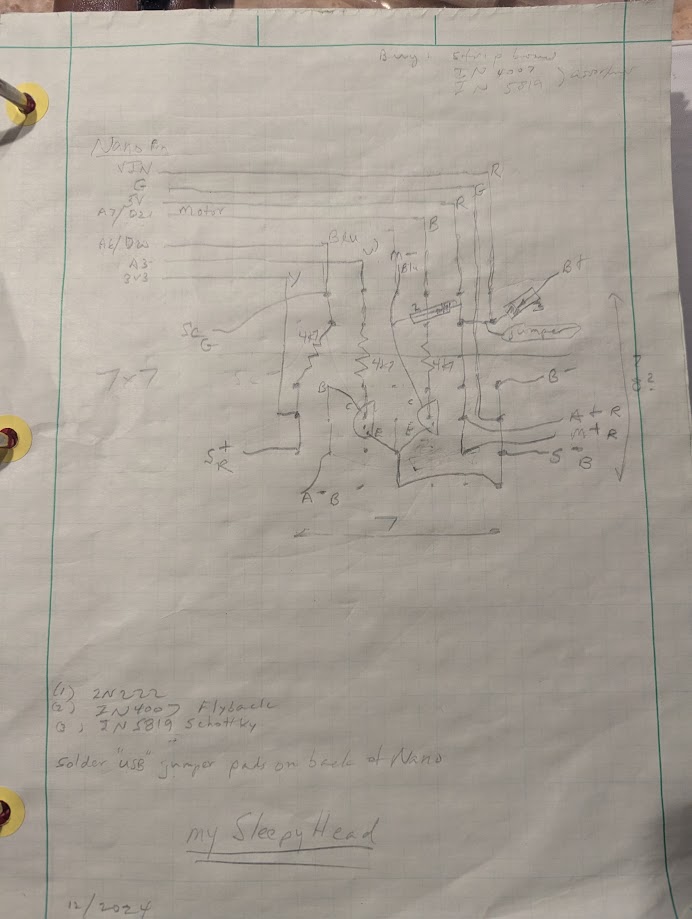 Buy:
IN 4007
IN 5819
Nano Pin
VIN R
G G
5V R
A7/D21 Motor B
A6/D20 Blu
A3
3V3 Y
M-
Blu
B+
Jumper
Sc
G
4k7
4k7
4k7
7x7
7
B
B-
C
C
E
E
A+ R
M+ R
S+
R
S-
B
A-B
7
(1) 2N222
(2) IN4007 Flyback
(3) IN5819 Schottky
Solder "USB" jumper pads on back of Nano
My SleepyHead
12/2024